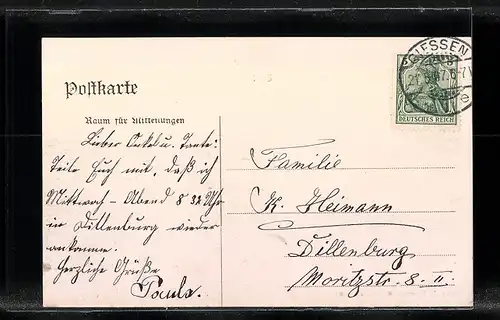 Postkarte
Raum für Mitteilungen
Lieber Onkel u. Tante:
Teile Euch mit, daß ich
Mittwoch – Abend 8 32 Uhr
in Dillenburg wieder
ankomme.
Herzliche Grüße
Paula.
GIESSEN
DEUTSCHES REICH
Familie
K. Heimann
Dillenburg
Moritzstr. 8. II.